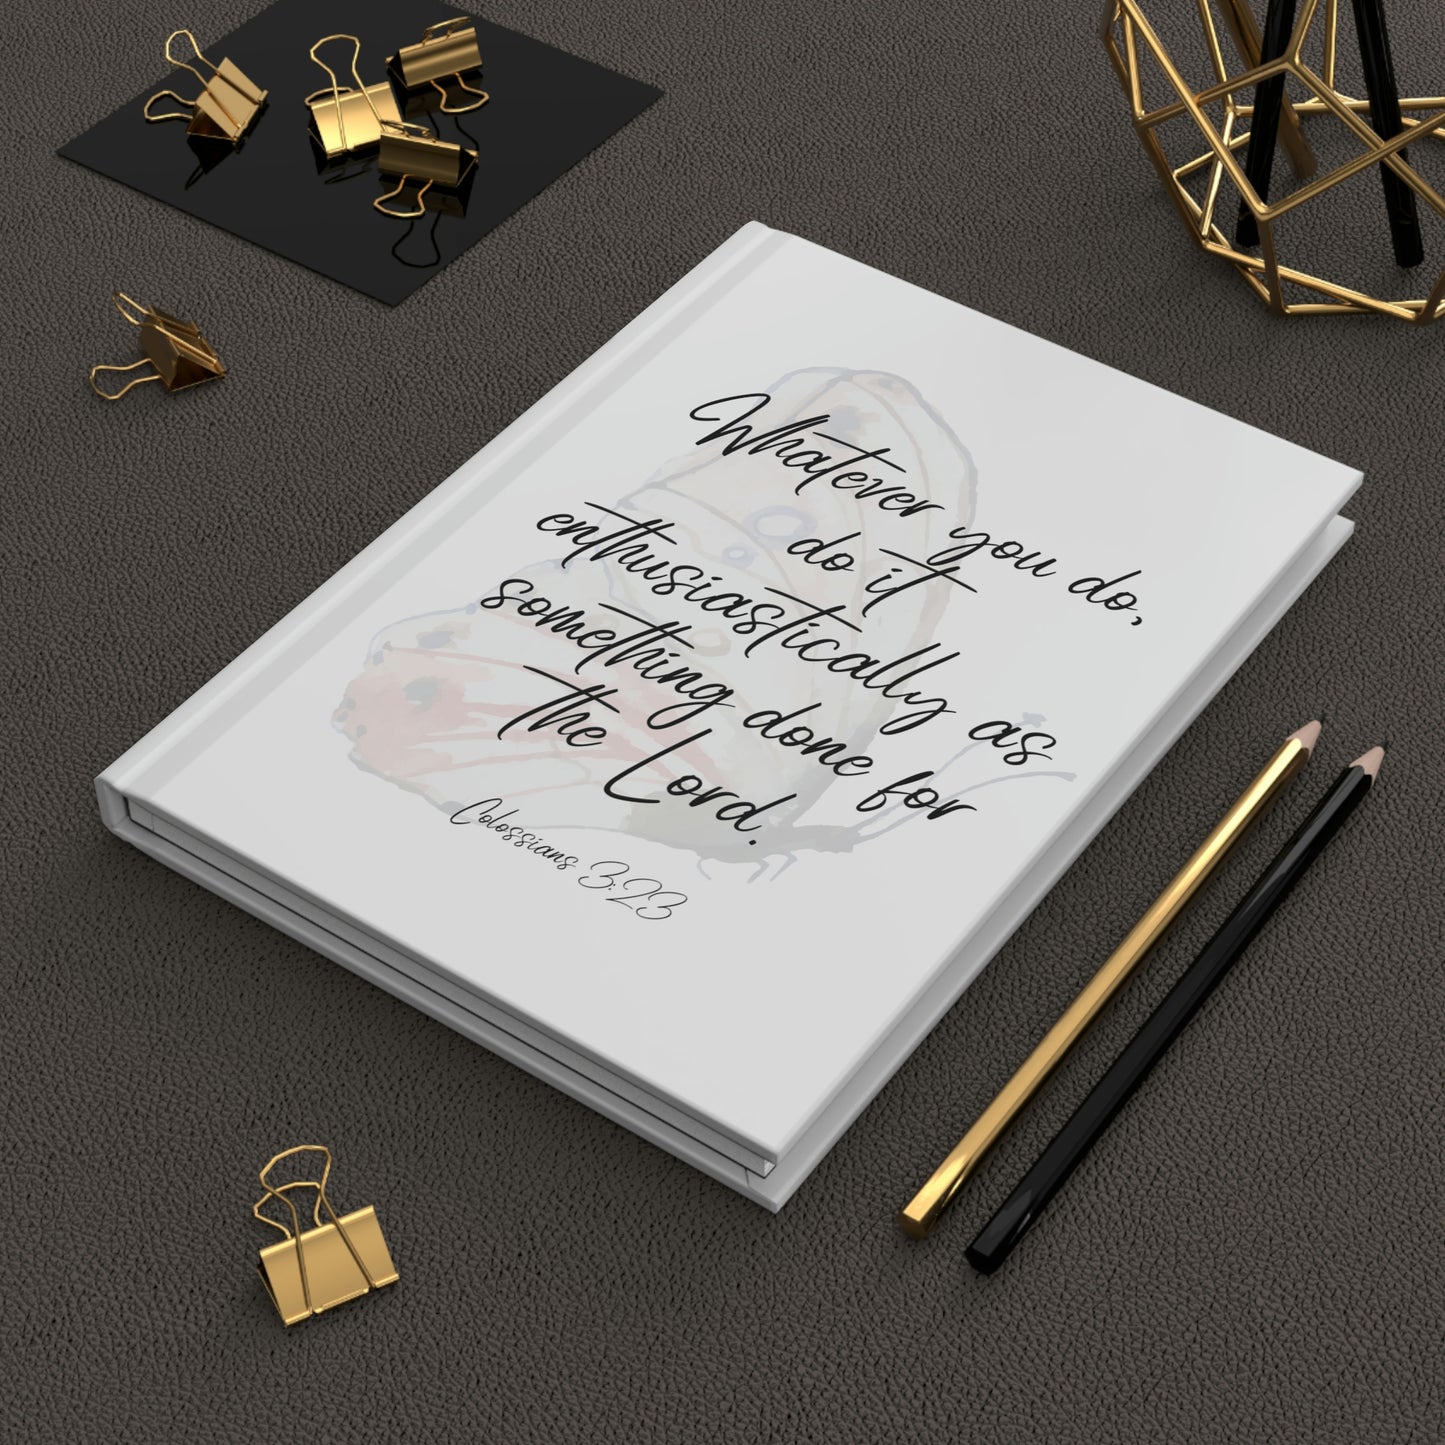 Whatever you do,
do it
enthusiastically as
something done for
the Lord.
Colossians 3:23